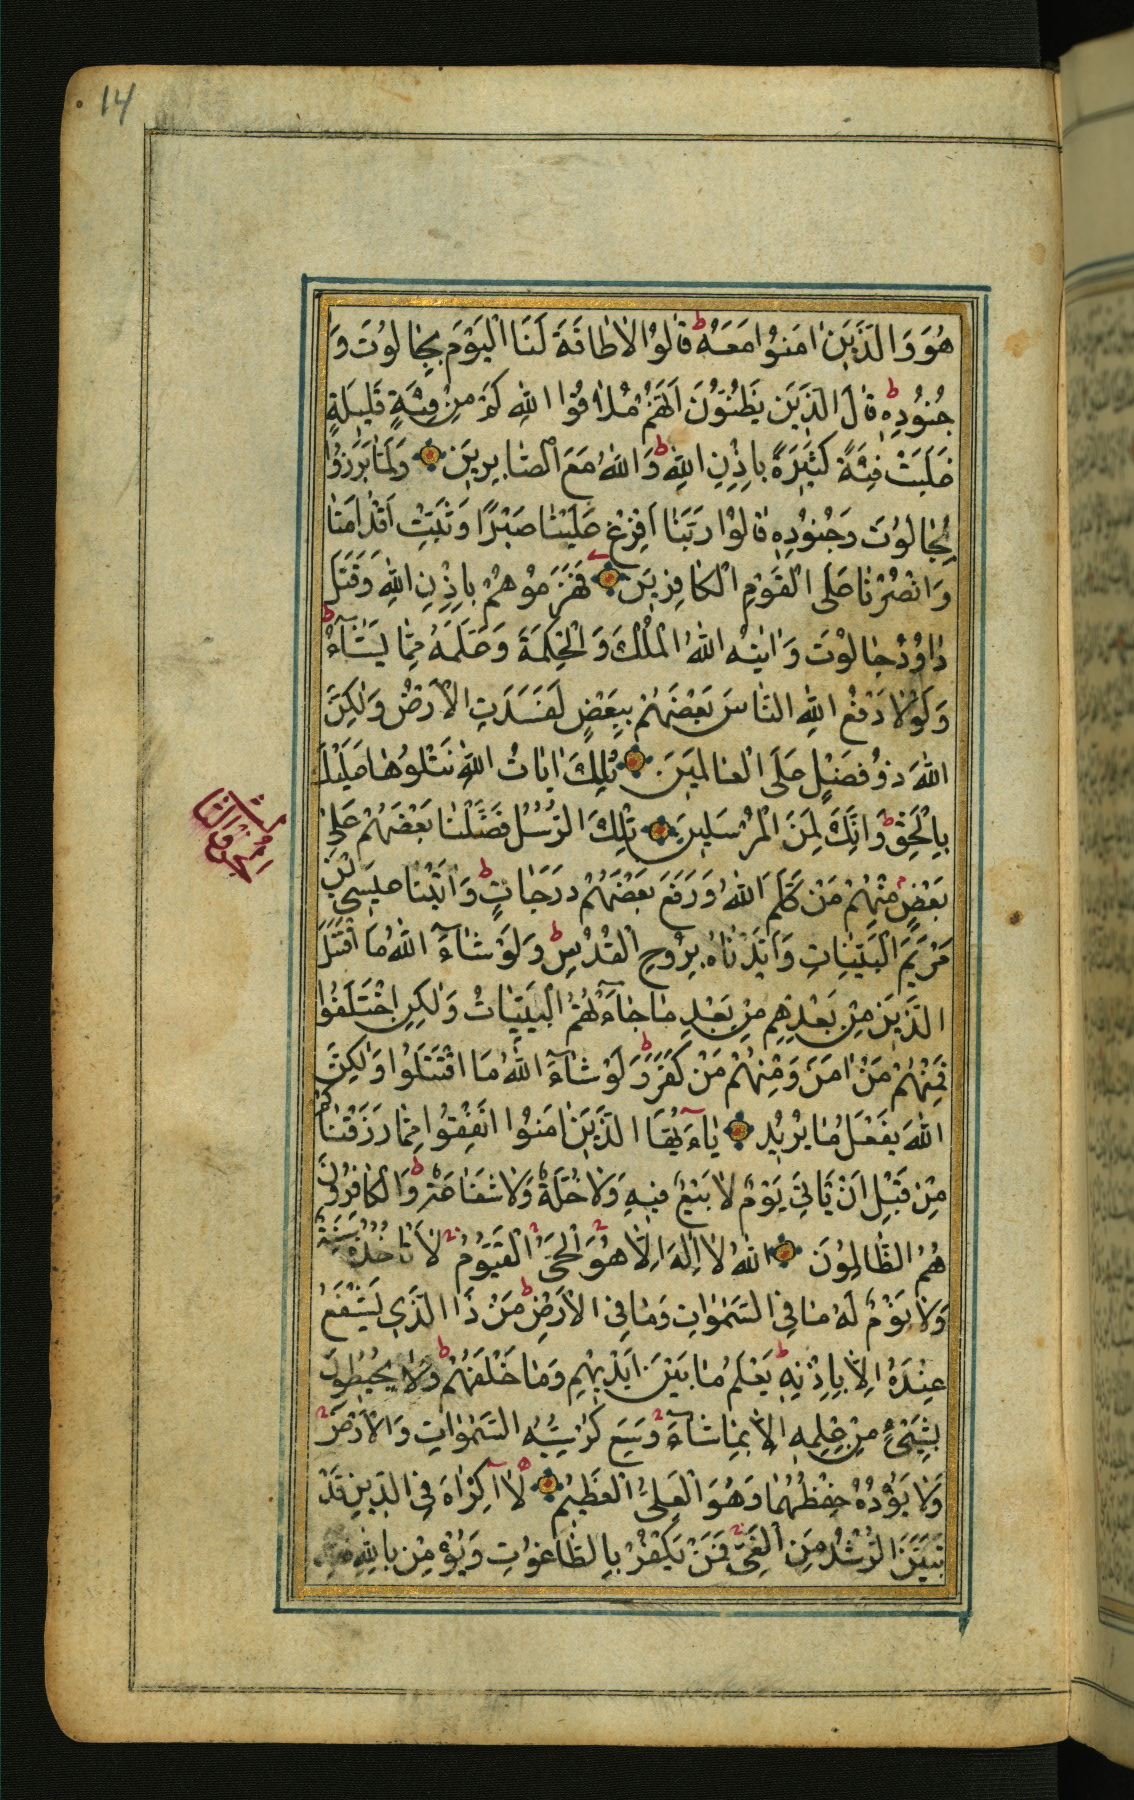 14
هُوَ وَالَّذِينَ اٰمَنُوا مَعَهُ ط قَالُوا لَا طَاقَةَ لَنَا الْيَوْمَ بِجَالُوتَ وَ
جُنُودِهِ ط قَالَ الَّذِينَ يَظُنُّونَ اَنَّهُمْ مُلَاقُوا اللّٰهِ كَمْ مِنْ فِئَةٍ قَلِيلَةٍ
غَلَبَتْ فِئَةً كَثِيرَةً بِاِذْنِ اللّٰهِ ط وَاللّٰهُ مَعَ الصَّابِرِينَ وَلَمَّا بَرَزُوا
لِجَالُوتَ وَجُنُودِهِ قَالُوا رَبَّنَا اَفْرِغْ عَلَيْنَا صَبْرًا وَثَبِّتْ اَقْدَامَنَا
وَانْصُرْنَا عَلَى الْقَوْمِ الْكَافِرِينَ فَهَزَمُوهُمْ بِاِذْنِ اللّٰهِ وَقَتَلَ
دَاوُدُ جَالُوتَ وَاٰتٰيهُ اللّٰهُ الْمُلْكَ وَالْحِكْمَةَ وَعَلَّمَهُ مِمَّا يَشَآءُ ط
وَلَوْلَا دَفْعُ اللّٰهِ النَّاسَ بَعْضَهُمْ بِبَعْضٍ لَفَسَدَتِ الْاَرْضُ وَلٰكِنَّ
اللّٰهَ ذُو فَضْلٍ عَلَى الْعَالَمِينَ تِلْكَ اٰيَاتُ اللّٰهِ نَتْلُوهَا عَلَيْكَ
بِالْحَقِّ ط وَاِنَّكَ لَمِنَ الْمُرْسَلِينَ تِلْكَ الرُّسُلُ فَضَّلْنَا بَعْضَهُمْ عَلٰى
الجزو الثالث
بَعْضٍ م مِنْهُمْ مَنْ كَلَّمَ اللّٰهُ وَرَفَعَ بَعْضَهُمْ دَرَجَاتٍ ط وَاٰتَيْنَا عِيسَى ابْنَ
مَرْيَمَ الْبَيِّنَاتِ وَاَيَّدْنَاهُ بِرُوحِ الْقُدُسِ ط وَلَوْ شَآءَ اللّٰهُ مَا اقْتَتَلَ
الَّذِينَ مِنْ بَعْدِهِمْ مِنْ بَعْدِ مَا جَآءَتْهُمُ الْبَيِّنَاتُ وَلٰكِنِ اخْتَلَفُوا
فَمِنْهُمْ مَنْ اٰمَنَ وَمِنْهُمْ مَنْ كَفَرَ ط وَلَوْ شَآءَ اللّٰهُ مَا اقْتَتَلُوا وَلٰكِنَّ
اللّٰهَ يَفْعَلُ مَا يُرِيدُ يَآ اَيُّهَا الَّذِينَ اٰمَنُوا اَنْفِقُوا مِمَّا رَزَقْنَاكُمْ
مِنْ قَبْلِ اَنْ يَاْتِيَ يَوْمٌ لَا بَيْعٌ فِيهِ وَلَا خُلَّةٌ وَلَا شَفَاعَةٌ ط وَالْكَافِرُونَ
هُمُ الظَّالِمُونَ اَللّٰهُ لَا اِلٰهَ اِلَّا هُوَ الْحَيُّ الْقَيُّومُ لَا تَاْخُذُهُ سِنَةٌ
وَلَا نَوْمٌ لَهُ مَا فِي السَّمٰوَاتِ وَمَا فِي الْاَرْضِ ط مَنْ ذَا الَّذِي يَشْفَعُ
عِنْدَهُ اِلَّا بِاِذْنِهِ ط يَعْلَمُ مَا بَيْنَ اَيْدِيهِمْ وَمَا خَلْفَهُمْ ط وَلَا يُحِيطُونَ
بِشَيْءٍ مِنْ عِلْمِهِ اِلَّا بِمَا شَآءَ وَسِعَ كُرْسِيُّهُ السَّمٰوَاتِ وَالْاَرْضَ
وَلَا يَؤُدُهُ حِفْظُهُمَا وَهُوَ الْعَلِيُّ الْعَظِيمُ لَآ اِكْرَاهَ فِي الدِّينِ قَدْ
تَبَيَّنَ الرُّشْدُ مِنَ الْغَيِّ فَمَنْ يَكْفُرْ بِالطَّاغُوتِ وَيُؤْمِنْ بِاللّٰهِ